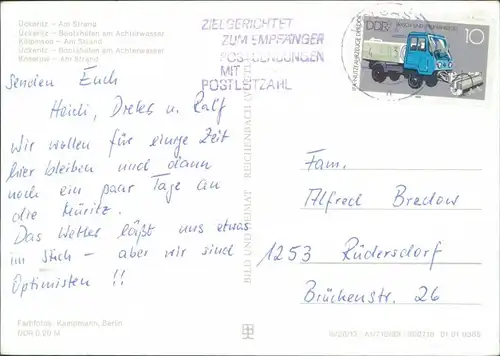 Ückeritz - Am Strand
Ückeritz - Bootshafen am Achterwasser
Kölpinsee - Am Strand
Ückeritz - Bootshafen am Achterwasser
Koserow - Am Strand
ZIELGERICHTET
ZUM EMPFÄNGER
POSTSENDUNGEN
MIT
POSTLEITZAHL
DDR
10
Senden Euch
Heidi, u. Ralf
Wir wollen für einige Zeit
hier bleiben und dann
noch ein paar Tage an
die Müritz.
Das Wetter läßt uns etwas
im Stich – aber wir sind
Optimisten !!
BILD UND HEIMAT REICHENBACH (VOGTL)
Fam.
Alfred Bredow
1253 Rüdersdorf
Brückenstr. 26
Farbfotos: Kampmann, Berlin
DDR 0,20 M
01 01 0385